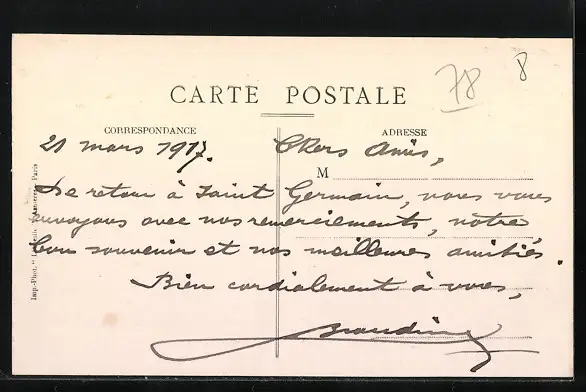 78
8
CARTE POSTALE
CORRESPONDANCE
ADRESSE
21 mars 1917. Chers Amis,
M
De retour à Saint Germain, nous vous
envoyons avec nos remerciements, notre
bon souvenir et nos meilleures amitiés.
Bien cordialement à vous,